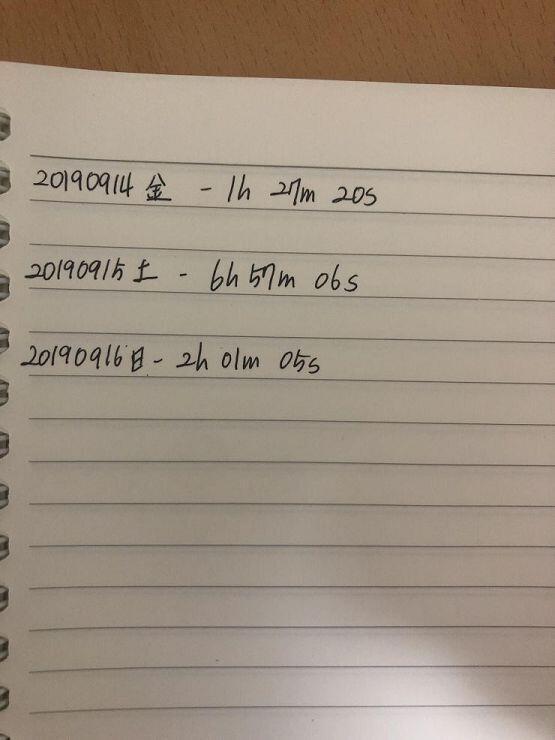 20190914 金 - 1h 27m 20s
20190915 土 - 6h 57m 06s
20190916 日 - 2h 01m 05s